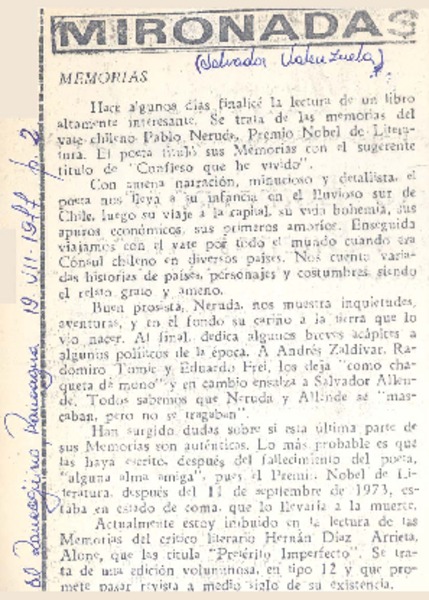 MIRONADAS
(Salvador Valenzuela)
MEMORIAS
Hace algunos días finalicé la lectura de un libro
altamente interesante. Se trata de las memorias del
vate chileno Pablo Neruda, Premio Nobel de Litera-
tura. El poeta tituló sus Memorias con el sugerente
título de "Confieso que he vivido".
Con amena narración, minucioso y detallista, el
poeta nos lleva a su infancia en el lluvioso sur de
Chile, luego su viaje a la capital, su vida bohemia, sus
apuros económicos, sus primeros amoríos. Enseguida
viajamos con el vate por todo el mundo cuando era
Cónsul chileno en diversos países. Nos cuenta varia-
das historias de países, personajes y costumbres, siendo
el relato grato y ameno.
Buen prosista, Neruda, nos muestra inquietudes,
aventuras, y en el fondo su cariño a la tierra que lo
vio nacer. Al final, dedica algunos breves acápites a
algunos políticos de la época. A Andrés Zaldívar, Ra-
domiro Tomic y Eduardo Frei, los deja "como cha-
queta de mono" y en cambio ensalza a Salvador Allen-
de. Todos sabemos que Neruda y Allende se "mas-
caban, pero no se tragaban".
Han surgido dudas sobre si esta última parte de
sus Memorias son auténticas. Lo más probable es que
las haya escrito, después del fallecimiento del poeta,
"alguna alma amiga", pues el Premio Nobel de Li-
teratura, después del 11 de septiembre de 1973, es-
taba en estado de coma, que lo llevaría a la muerte.
Actualmente estoy imbuido en la lectura de las
Memorias del crítico literario Hernán Díaz Arrieta,
Alone, que las titula "Pretérito Imperfecto". Se tra-
ta de una edición voluminosa, en tipo 12 y que pro-
mete pasar revista a medio siglo de su existencia.
El Rancagüino Rancagua 19-VII-1977 p. 2